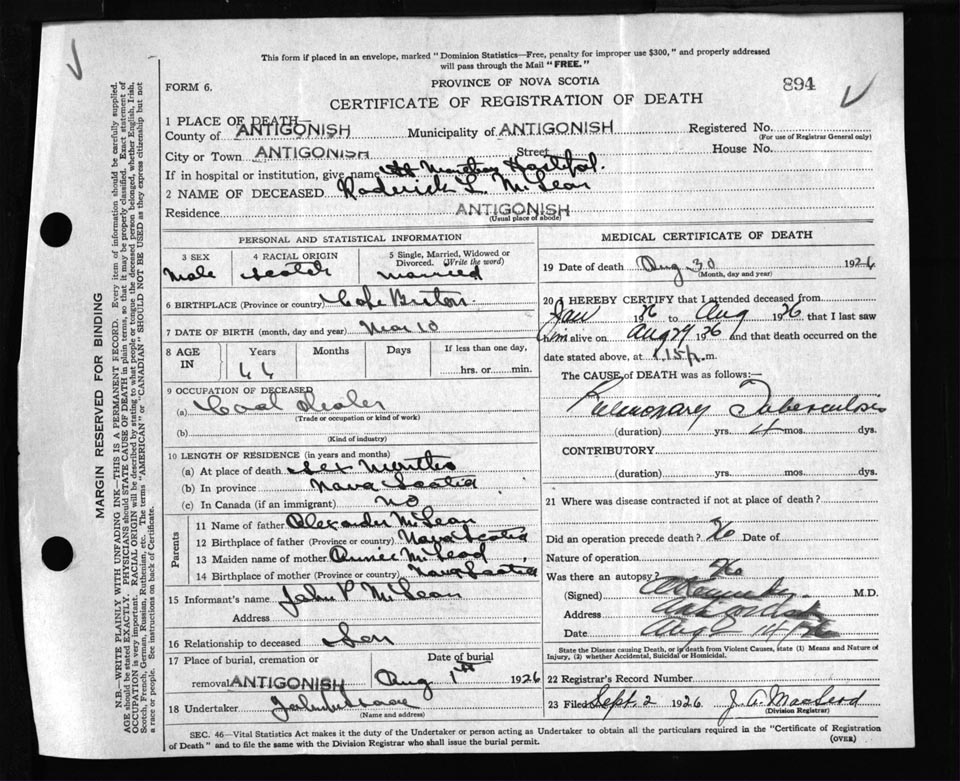 This form if placed in an envelope, marked "Dominion Statistics—Free, penalty for improper use $300," and properly addressed
will pass through the Mail "FREE."
FORM 6.
PROVINCE OF NOVA SCOTIA
894
CERTIFICATE OF REGISTRATION OF DEATH
1 PLACE OF DEATH—
County of ANTIGONISH Municipality of ANTIGONISH Registered No.
(For use of Registrar General only)
City or Town ANTIGONISH Street House No.
If in hospital or institution, give name St Hospital.
2 NAME OF DECEASED Roderick L McLean
Residence ANTIGONISH
(Usual place of abode)
PERSONAL AND STATISTICAL INFORMATION
3 SEX 4 RACIAL ORIGIN 5 Single, Married, Widowed or
Divorced. (Write the word)
Male Scotch Married
6 BIRTHPLACE (Province or country) Cape Breton
7 DATE OF BIRTH (month, day and year) Mar 10
8 AGE IN Years Months Days If less than one day,
hrs. or min.
66
9 OCCUPATION OF DECEASED
(a) Coal Dealer
(Trade or occupation or kind of work)
(b)
(Kind of industry)
10 LENGTH OF RESIDENCE (in years and months)
(a) At place of death Six Months
(b) In province Nova Scotia
(c) In Canada (if an immigrant) NO
Parents
11 Name of father Alexander McLean
12 Birthplace of father (Province or country) Nova Scotia
13 Maiden name of mother Annie McLeod
14 Birthplace of mother (Province or country) Nova Scotia
15 Informant's name John P McLean
Address
16 Relationship to deceased Son
17 Place of burial, cremation or Date of burial
removal ANTIGONISH Aug 1st 1926
18 Undertaker
(Name and address)
MEDICAL CERTIFICATE OF DEATH
19 Date of death Aug 30 1926
(Month, day and year)
20 I HEREBY CERTIFY that I attended deceased from
Jan 1926 to Aug 1926 that I last saw
him alive on Aug 29 1926 and that death occurred on the
date stated above, at 1.15 p.m.
The CAUSE of DEATH was as follows:—
Pulmonary Tuberculosis
(duration) yrs. 4 mos. dys.
CONTRIBUTORY
(duration) yrs. mos. dys.
21 Where was disease contracted if not at place of death?
Did an operation precede death? No Date of
Nature of operation
Was there an autopsy? No
(Signed) M.D.
Address Antigonish
Date Aug
State the Disease causing Death, or in death from Violent Causes, state (1) Means and Nature of
Injury, (2) whether Accidental, Suicidal or Homicidal.
22 Registrar's Record Number
23 Filed Sept. 2 1926 J. A. MacLeod
(Division Registrar)
SEC. 46—Vital Statistics Act makes it the duty of the Undertaker or person acting as Undertaker to obtain all the particulars required in the "Certificate of Registration
of Death" and to file the same with the Division Registrar who shall issue the burial permit.
(OVER)
MARGIN RESERVED FOR BINDING
N.B.—WRITE PLAINLY WITH UNFADING INK—THIS IS A PERMANENT RECORD. Every item of information should be carefully supplied.
AGE should be stated EXACTLY. PHYSICIANS should STATE CAUSE OF DEATH in plain terms, so that it may be properly classified. Exact statement of
OCCUPATION is very important. RACIAL ORIGIN will be described by stating to what people or tongue the deceased person belonged, whether English, Irish,
Scotch, French, German, Russian, Ruthenian, etc. The terms "AMERICAN" or "CANADIAN" SHOULD NOT BE USED as they express citizenship but not
a race or people. See instructions on back of Certificate.